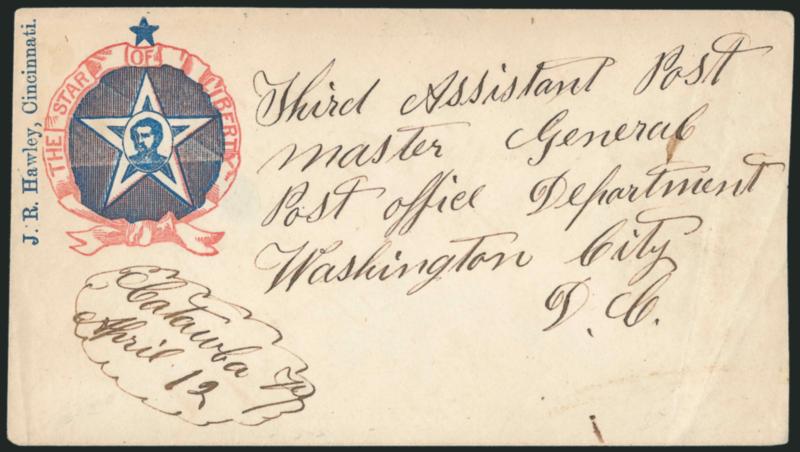 J. R. Hawley, Cincinnati.
THE STAR OF LIBERTY
Third Assistant Post
master General
Post office Department
Washington City
D. C.
Catawba
April 12